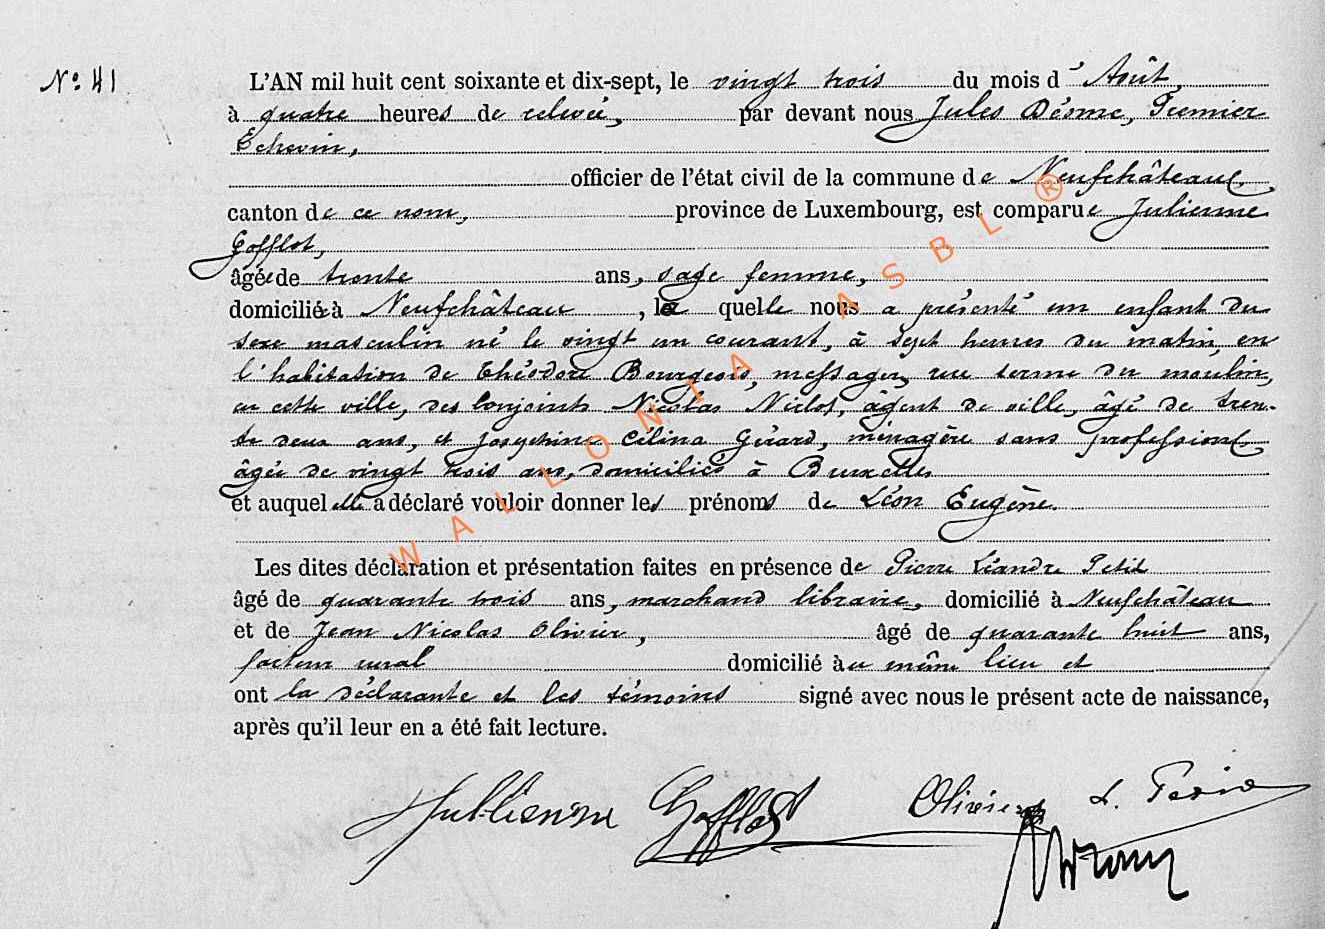 N° 41
L'AN mil huit cent soixante et dix-sept, le vingt trois du mois d' Août
à quatre heures de relevée, par devant nous Jules Désme, Premier
Echevin,
officier de l'état civil de la commune de Neufchâteau,
canton de ce nom, province de Luxembourg, est comparue Julienne
Gofflot,
âgée de trente ans, sage femme,
domiciliée à Neufchâteau, la quelle nous a présenté un enfant du
sexe masculin né le vingt un courant, à sept heures du matin, en
l'habitation de Théodore Bourgeois, messager, rue terme du moulin,
en cette ville, des conjoints Nicolas Niclot, agent de ville, âgé de tren-
te deux ans, et Josephine Célina Gérard, ménagère sans profession,
âgée de vingt trois ans, domiciliés à Bruxelles
et auquel elle a déclaré vouloir donner les prénoms de Léon Eugène.
Les dites déclaration et présentation faites en présence de Pierre Léandre Petit
âgé de quarante trois ans, marchand libraire, domicilié à Neufchâteau
et de Jean Nicolas Olivier, âgé de quarante huit ans,
facteur rural domicilié au même lieu et
ont la déclarante et les témoins signé avec nous le présent acte de naissance,
après qu'il leur en a été fait lecture.
Jullienne Gofflot Olivier L. Petit
WALLONIA ASBL ®